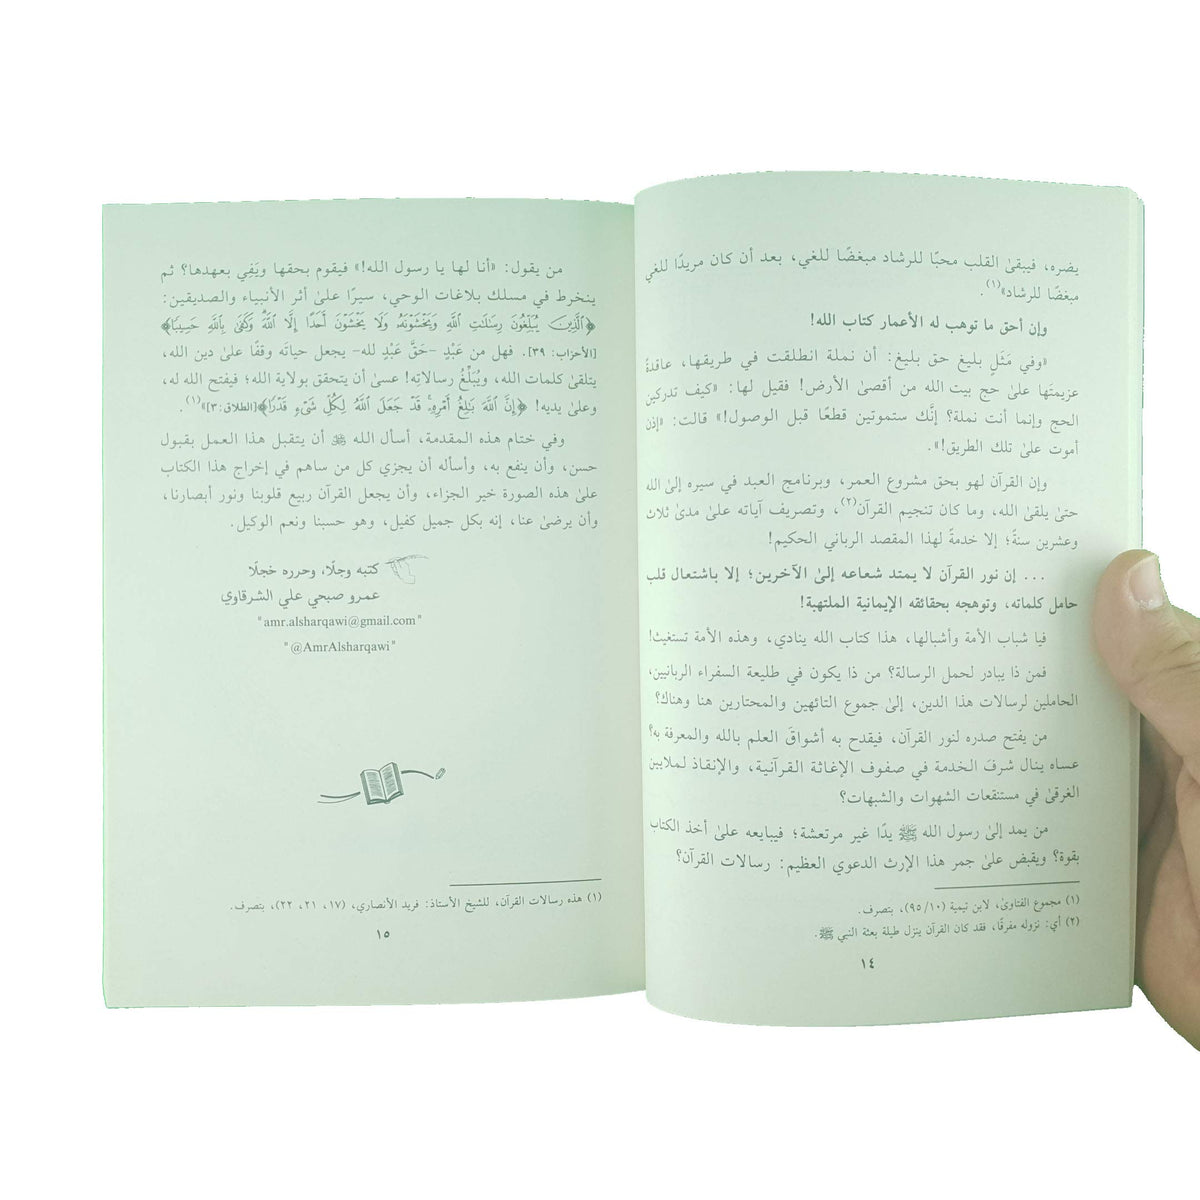 يضره، فيبقىٰ القلب محبًا للرشاد مبغضًا للغي، بعد أن كان مريدًا للغي
مبغضًا للرشاد»(١).
وإن أحق ما توهب له الأعمار كتاب الله!
«وفي مَثَلٍ بليغ حق بليغ: أن نملة انطلقت في طريقها، عاقدةً
عزيمتَها علىٰ حج بيت الله من أقصىٰ الأرض! فقيل لها: «كيف تدركين
الحج وإنما أنت نملة؟ إنَّك ستموتين قطعًا قبل الوصول!» قالت: «إذن
أموت علىٰ تلك الطريق!».
وإن القرآن لهو بحق مشروع العمر، وبرنامج العبد في سيره إلىٰ الله
حتىٰ يلقىٰ الله، وما كان تنجيم القرآن(٢)، وتصريف آياته علىٰ مدىٰ ثلاث
وعشرين سنةً؛ إلا خدمةً لهذا المقصد الرباني الحكيم!
... إن نور القرآن لا يمتد شعاعه إلىٰ الآخرين؛ إلا باشتعال قلب
حامل كلماته، وتوهجه بحقائقه الإيمانية الملتهبة!
فيا شباب الأمة وأشبالها، هذا كتاب الله ينادي، وهذه الأمة تستغيث!
فمن ذا يبادر لحمل الرسالة؟ من ذا يكون في طليعة السفراء الربانيين،
الحاملين لرسالات هذا الدين، إلىٰ جموع التائهين والمحتارين هنا وهناك؟
من يفتح صدره لنور القرآن، فيقدح به أشواقَ العلم بالله والمعرفة به؟
عساه ينال شرفَ الخدمة في صفوف الإغاثة القرآنية، والإنقاذ لملايين
الغرقىٰ في مستنقعات الشهوات والشبهات؟
من يمد إلىٰ رسول الله ﷺ يدًا غير مرتعشة؛ فيبايعه علىٰ أخذ الكتاب
بقوة؟ ويقبض علىٰ جمر هذا الإرث الدعوي العظيم: رسالات القرآن؟
(١) مجموع الفتاوىٰ، لابن تيمية (٩٥/١٠)، بتصرف.
(٢) أي: نزوله مفرقًا، فقد كان القرآن ينزل طيلة بعثة النبي ﷺ.
١٤
من يقول: «أنا لها يا رسول الله!» فيقوم بحقها ويَفِي بعهدها؟ ثم
ينخرط في مسلك بلاغات الوحي، سيرًا علىٰ أثر الأنبياء والصديقين:
﴿ٱلَّذِينَ يُبَلِّغُونَ رِسَٰلَٰتِ ٱللَّهِ وَيَخْشَوْنَهُۥ وَلَا يَخْشَوْنَ أَحَدًا إِلَّا ٱللَّهَ وَكَفَىٰ بِٱللَّهِ حَسِيبًا﴾
[الأحزاب: ٣٩]. فهل من عَبْدٍ -حَقَّ عَبْدٍ لله- يجعل حياتَه وقفًا علىٰ دين الله،
يتلقىٰ كلمات الله، ويُبَلِّغُ رسالاتِه! عسىٰ أن يتحقق بولاية الله؛ فيفتح الله له،
وعلىٰ يديه! ﴿إِنَّ ٱللَّهَ بَٰلِغُ أَمْرِهِۦۚ قَدْ جَعَلَ ٱللَّهُ لِكُلِّ شَىْءٍ قَدْرًا﴾[الطلاق:٣]»(١).
وفي ختام هذه المقدمة، أسأل الله ﷻ أن يتقبل هذا العمل بقبول
حسن، وأن ينفع به، وأسأله أن يجزي كل من ساهم في إخراج هذا الكتاب
علىٰ هذه الصورة خير الجزاء، وأن يجعل القرآن ربيع قلوبنا ونور أبصارنا،
وأن يرضىٰ عنا، إنه بكل جميل كفيل، وهو حسبنا ونعم الوكيل.
كتبه وجلًا، وحرره خجلًا
عمرو صبحي علي الشرقاوي
"amr.alsharqawi@gmail.com"
"@AmrAlsharqawi"
(١) هذه رسالات القرآن، للشيخ الأستاذ: فريد الأنصاري، (١٧، ٢١، ٢٢)، بتصرف.
١٥